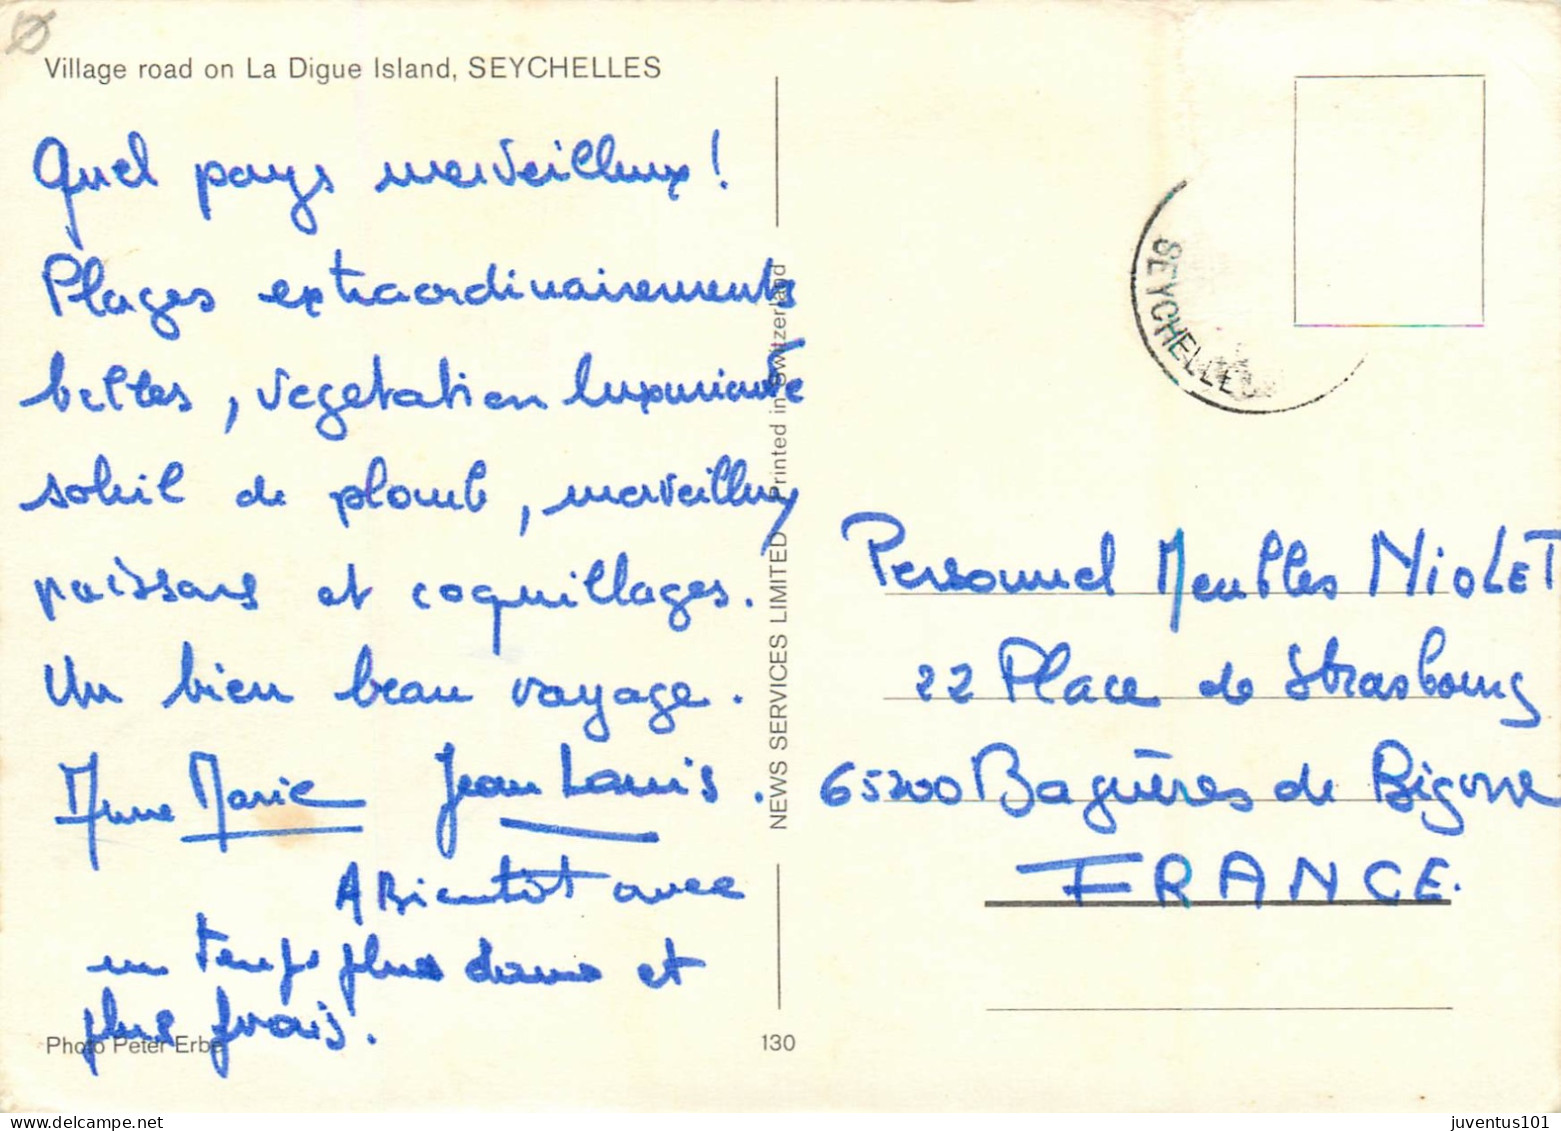 Village road on La Digue Island, SEYCHELLES
Quel pays merveilleux !
Plages extraordinairements
belles, vegetation luxuriante
soleil de plomb, merveilleux
poissons et coquillages.
Un bien beau voyage.
Anne Marie Jean Louis.
A Bientôt avec
un temps plus doux et
plus frais.
Photo Peter Erbe
130
NEWS SERVICES LIMITED Printed in Switzerland
SEYCHELLES
Personnel Meubles NIOLET
22 Place de Strasbourg
65200 Bagnères de Bigorre
FRANCE.
delcampe.net
juventus101